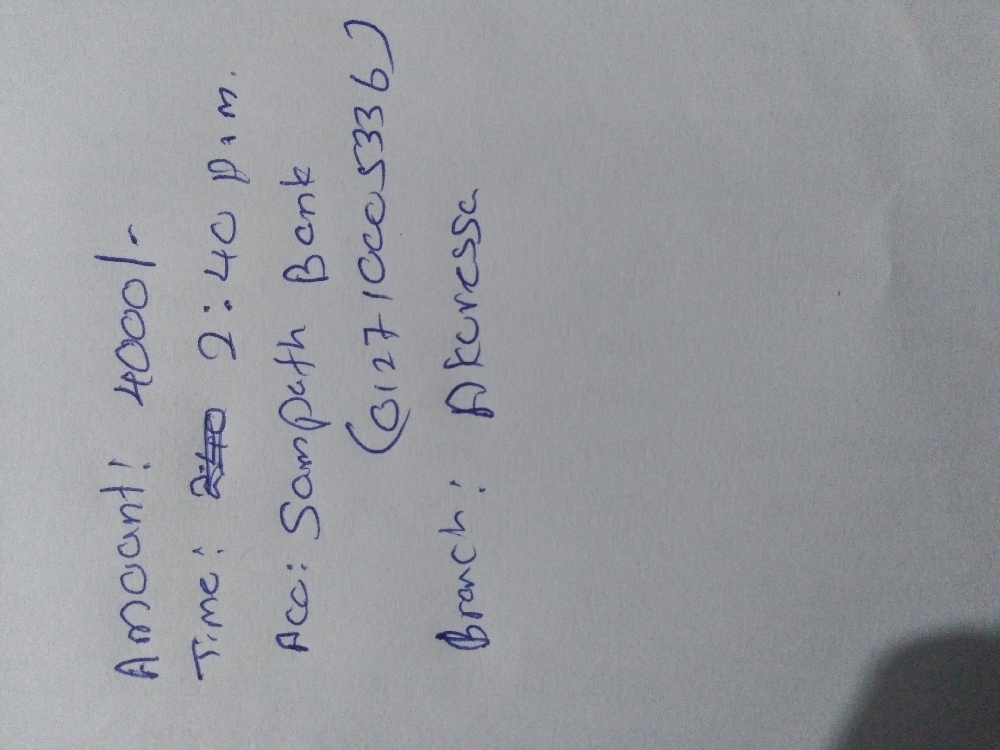 Amount: 4000/-
Time: 2:40 p.m.
Acc: Sampath Bank
(012710005336)
Branch: Akuressa